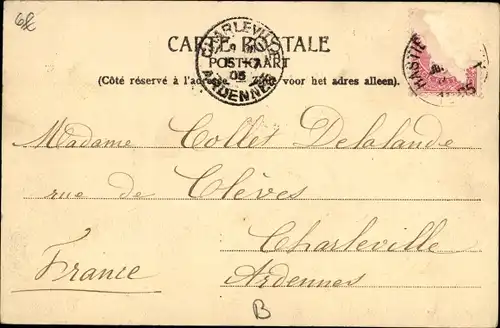 CARTE POSTALE
POSTKAART
(Côté réservé à l'adresse. — Zijde voor het adres alleen).
CHARLEVILLE
05
ARDENNES
HASTIÈ
Madame Collet Delalande
rue de Clèves
Charleville
France
Ardennes
B